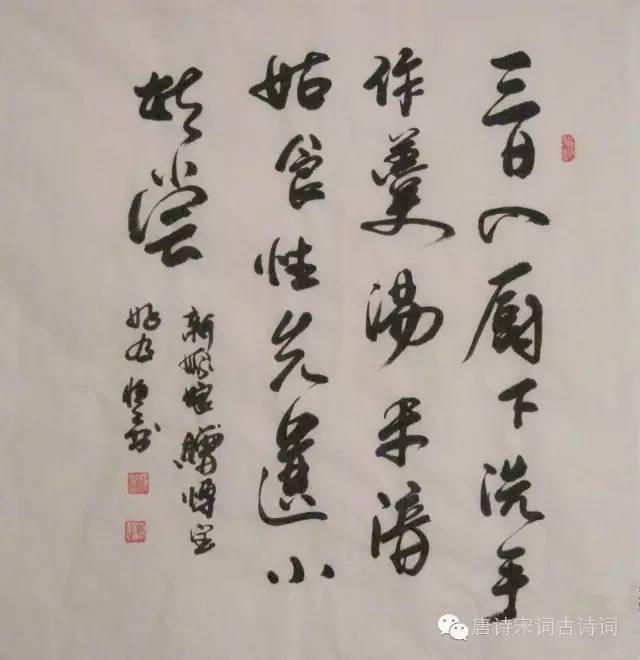 三日入厨下洗手
作羹湯未谙
姑食性先遣小
姑尝
新嫁娘
唐诗宋词古诗词